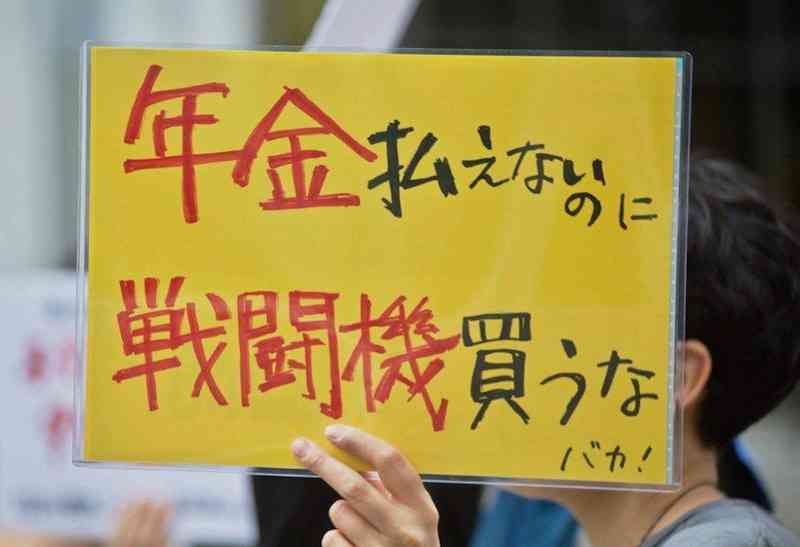 年金払えないのに
戦闘機買うな
バカ!